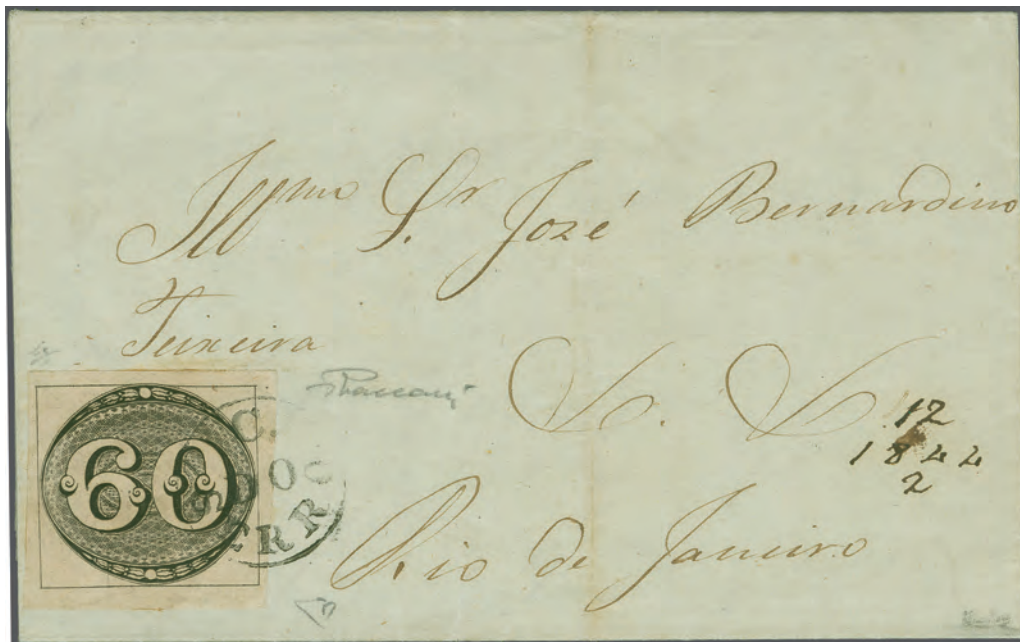 Illmo Sr José Bernardino
Teixeira
S. S.
12
1844
2
60
C.
Rio de Janeiro